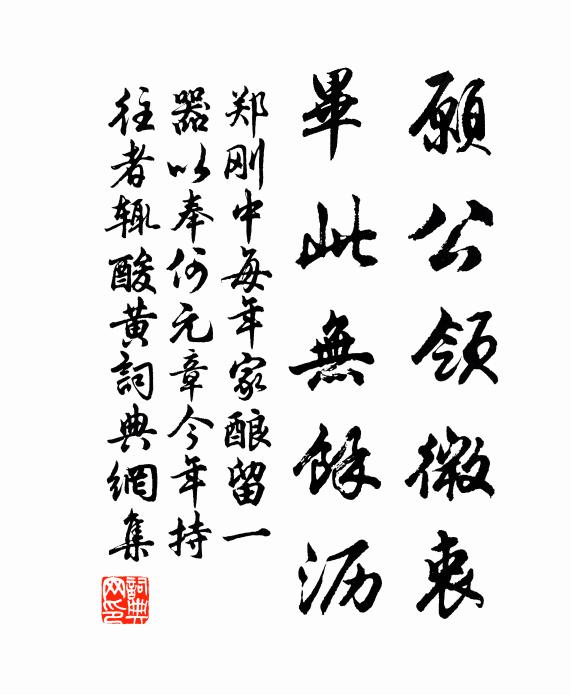 願公領微衷
畢此無餘沥
郑刚中每年家酿留一
器以奉何元章今年持
往者辄酸黄詞典網集
詞典
网印